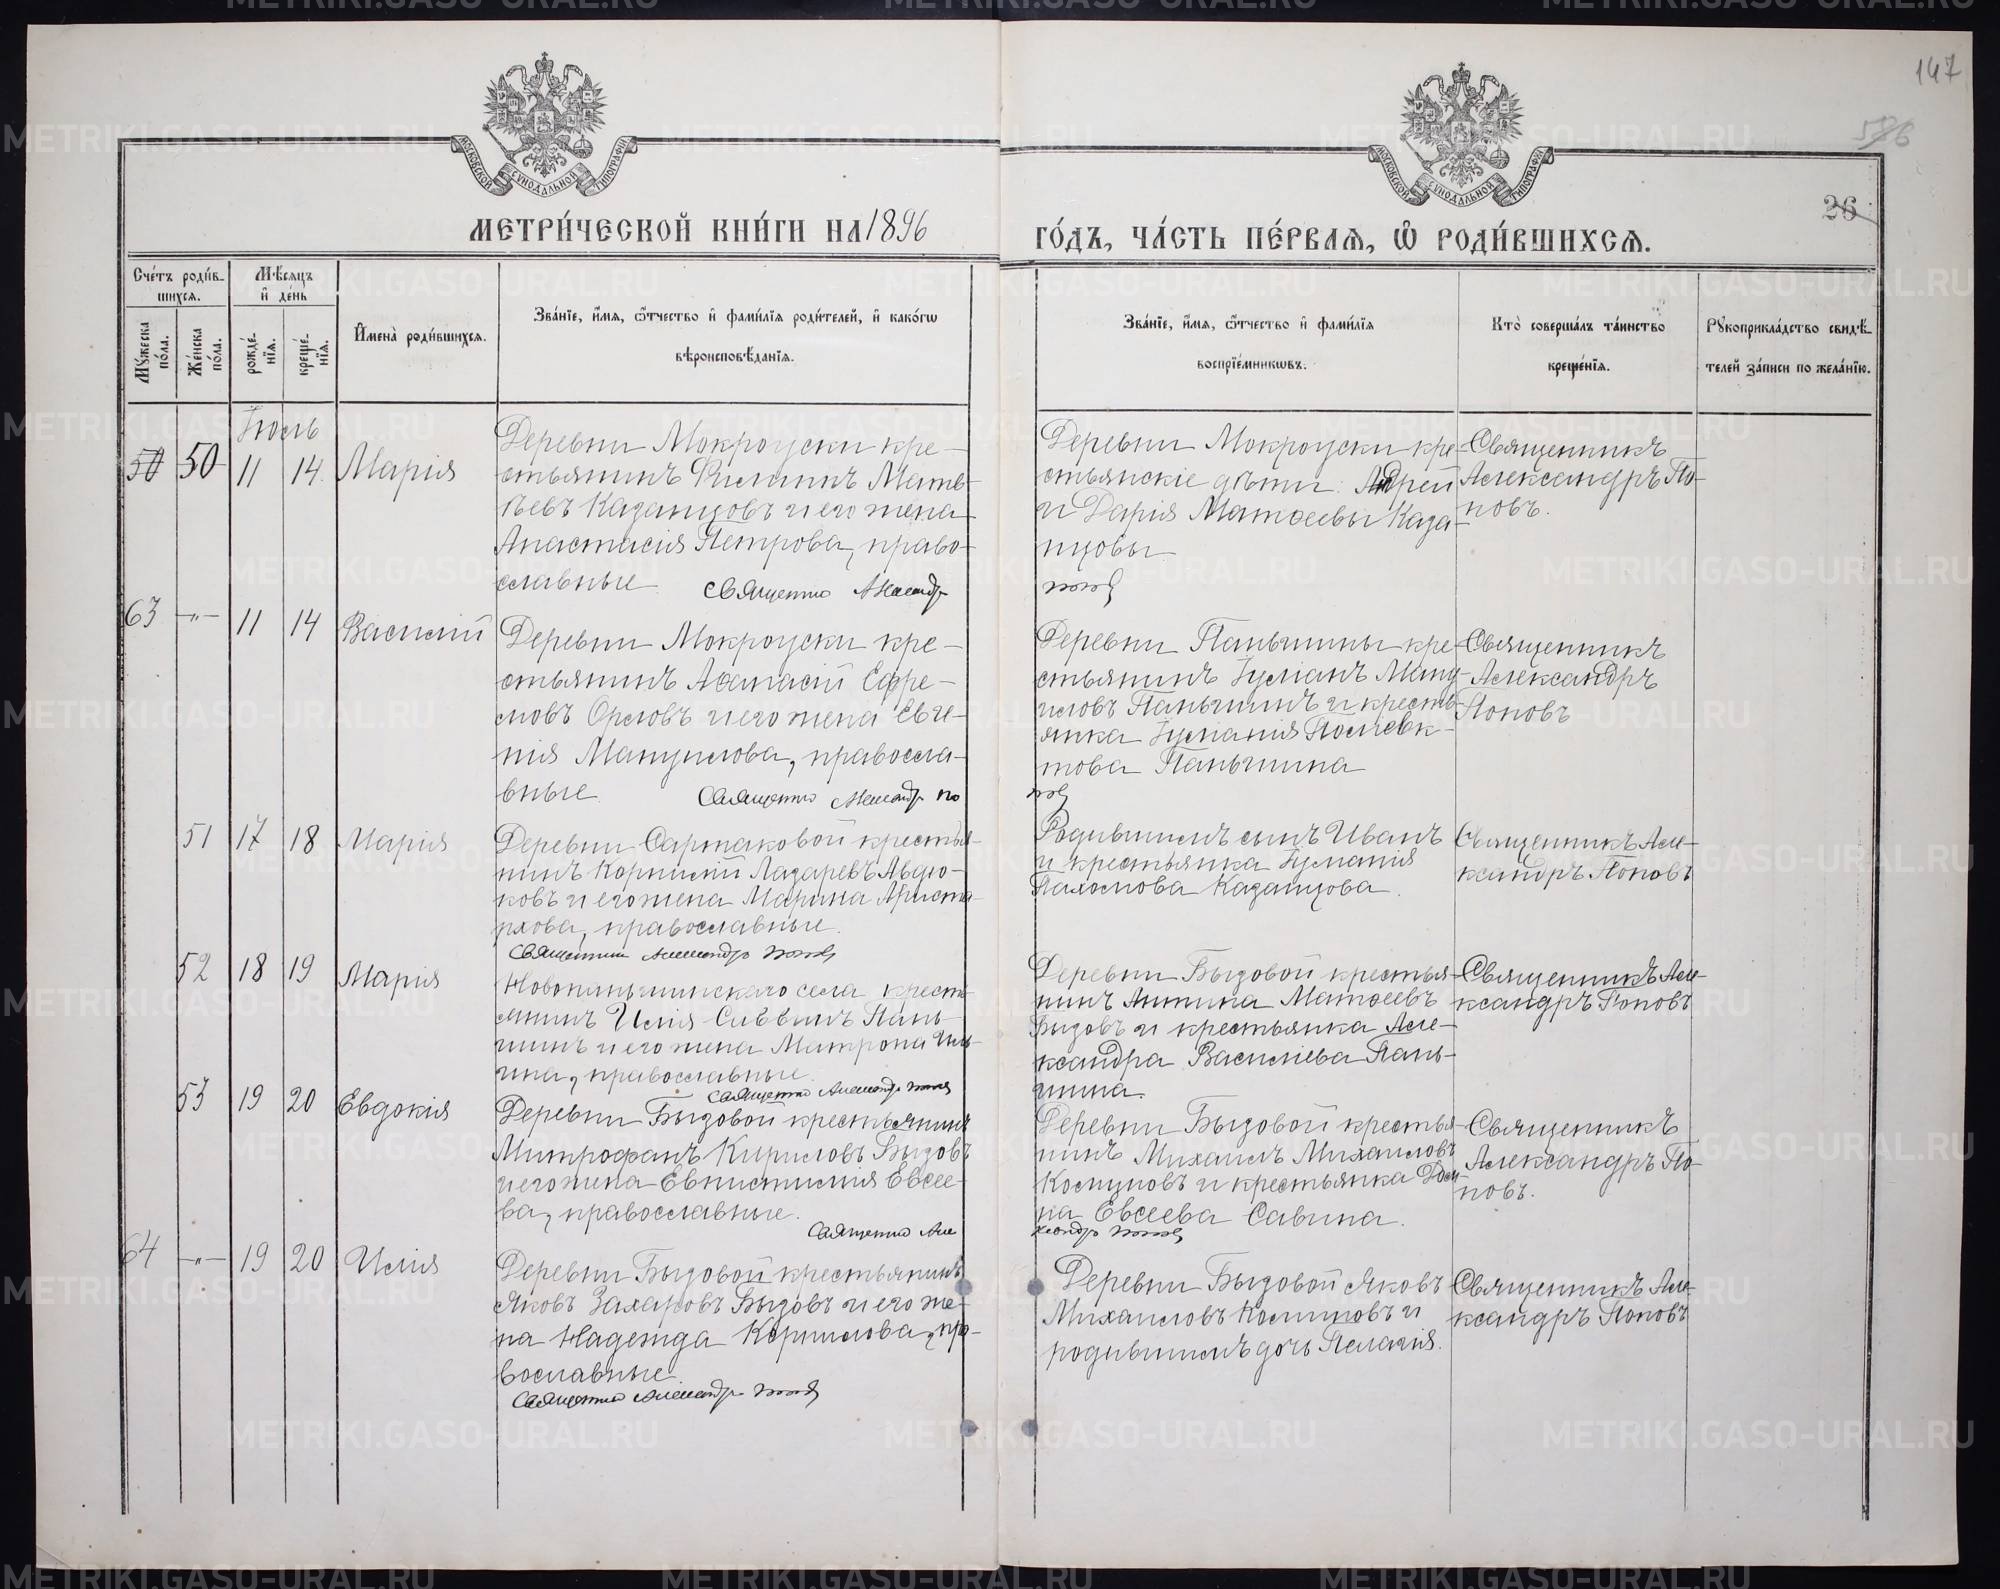 147
526
26
МОСКОВСКОЙ СУНОДАЛЬНОЙ ТИПОГРАФІИ
МОСКОВСКОЙ СУНОДАЛЬНОЙ ТИПОГРАФІИ
МЕТРИ́ЧЕСКОЙ КНИ́ГИ НА 1896
ГО́ДЪ, ЧА́СТЬ ПЕ́РВАЯ, Ѡ РОДИ́ВШИХСЯ.
Сче́тъ роди́в-
шихся.
Мѣ́сяцъ
и де́нь
Му́жеска
по́ла.
Же́нска
по́ла.
рожде́-
нїя.
креще́-
нїя.
Имена̀ роди́вшихся.
Зва́нїе, и́мя, ѻ҆́тчество и фами́лїя роди́телей, и како́гѡ
вѣроисповѣ́данїя.
Зва́нїе, и́мя, ѻ҆́тчество и фами́лїя
воспрїе́мникѡвъ.
Кто̀ соверша́лъ та́инство
креще́нїя.
Рукоприкла́дство свидѣ́-
телей за́писи по жела́нїю.
Іюль
50 50 11 14 Марія
Деревни Мокроуски кре-
стьянинъ Филиппъ Матѳ-
ѣевъ Казанцовъ и его жена
Анастасія Петрова, право-
славные
Священно Александр
Деревни Мокроуски кре-
стьянскіе дѣти: Андрей
и Дарія Матѳеевы Каза-
нцовы
Попов
Священникъ
Александръ По-
повъ.
63 -"- 11 14 Василій
Деревни Мокроуски кре-
стьянинъ Аѳанасій Ефре-
мовъ Орловъ и его жена Евге-
нія Мануилова, правосла-
вные
Священно Александр По
Деревни Паньшины кре-
стьянинъ Іуліанъ Ману-
иловъ Паньшинъ и кресть-
янка Іуліанія Полиевк-
това Паньшина
пов
Священникъ
Александръ
Поповъ
51 17 18 Марія
Деревни Сартаковой крестья-
нинъ Корнилій Лазаревъ Авдю-
ковъ и его жена Марина Ариста-
рхова, православные.
Священник Александр Попов
Родившимъ сынъ Иванъ
и крестьянка Іуліанія
Пахомова Казанцова.
Священникъ Але-
ксандръ Поповъ
52 18 19 Марія
Новопаньшинскаго села кресть-
янинъ Илія Саввинъ Пань-
шинъ и его жена Матрона Иль-
ина, православные.
Священно Александр Попов
Деревни Бызовой крестья-
нинъ Антипа Матѳеевъ
Бызовъ и крестьянка Але-
ксандра Василіева Пань-
шина.
Священникъ Але-
ксандръ Поповъ
53 19 20 Евдокія
Деревни Бызовой крестьянинъ
Митрофанъ Кириловъ Бызовъ
и его жена Евпистимія Евсее-
ва, православные.
Священно Але
Деревни Бызовой крестья-
нинъ Михаилъ Михаиловъ
и крестьянка
на Евсеева Савина.
ксандр Попов
Священникъ
Александръ По-
повъ.
64 -"- 19 20 Илія
Деревни Бызовой крестьянинъ
Яковъ Захаровъ Бызовъ и его же-
на Надежда Корнилова, пра-
вославные.
Священно Александр Попов
Деревни Бызовой Яковъ
Михаиловъ и
родившимъ дочь Пелагія.
Священникъ Але-
ксандръ Поповъ